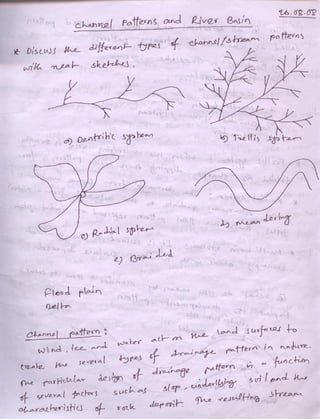 26.08.08
Channel Patterns and River Basin
* Discuss the different types of channel/stream patterns
with neat sketches.
a) Dentritic system
b) Trellis system
c) Radial system
d) meandering
e) Braided
Flood plain
Delta
Channel pattern:
Wind, ice and water act on the land surfaces to
create the several types of drainage pattern in nature.
The particular design of drainage pattern is a function
of several factors such as slop, underlying soil and the
characteristics of rock deposit The resulting stream